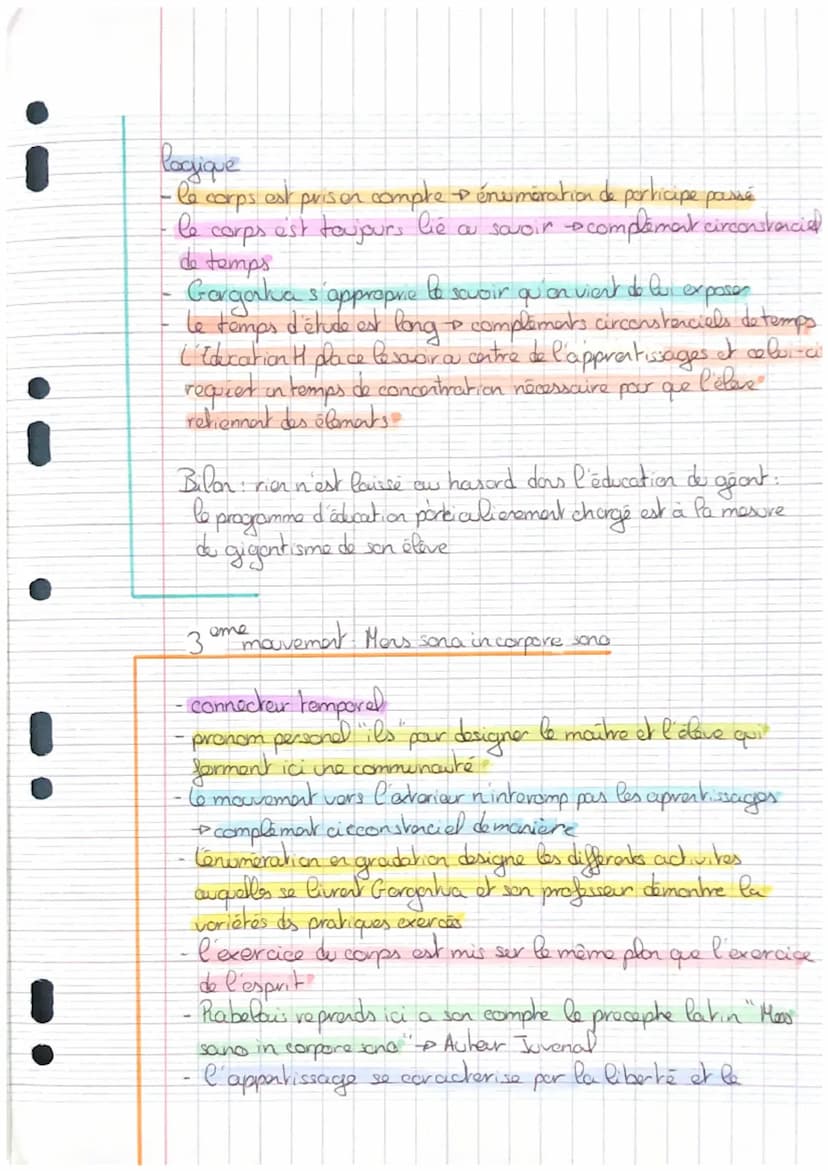 logique
- le corps est pris en compte → énumération de participe passé
- le corps est toujours lié au savoir → complément circonstanciel
de temps
- Gargantua s'approprie le savoir qu'on vient de lui exposer
- le temps d'étude est long → compléments circonstanciels de temps
L'Education H place le savoir au centre de l'apprentissages et celui-ci
requiert un temps de concentration nécessaire pour que l'élève
retiennent des éléments
Bilan : rien n'est laissé au hasard dans l'éducation du géant :
le progamme d'éducation particulierement chargé est à la mesure
du gigantisme de son élève
3 eme mouvement : Mens sana in corpore sano
- connecteur temporel
- pronom personel "ils" pour designer le maître et l'élève qui
forment ici une communauté
- le mouvement vers l'exterieur n'interromp pas les aprentissages
→ complément circonstanciel de manière
- l'énumération en gradation designe les différentes activites
auquelles se livrent Gargantua et son professeur démontre la
variétés ds pratiques exercés
- l'exercice du corps est mis sur le même plan que l'exercice
de l'esprit
- Rabelais reprends ici a son compte le precepte latin "Mens
sano in corpore sano" → Auteur Juvenal
- l'appentissage se caracterise par la liberté et le